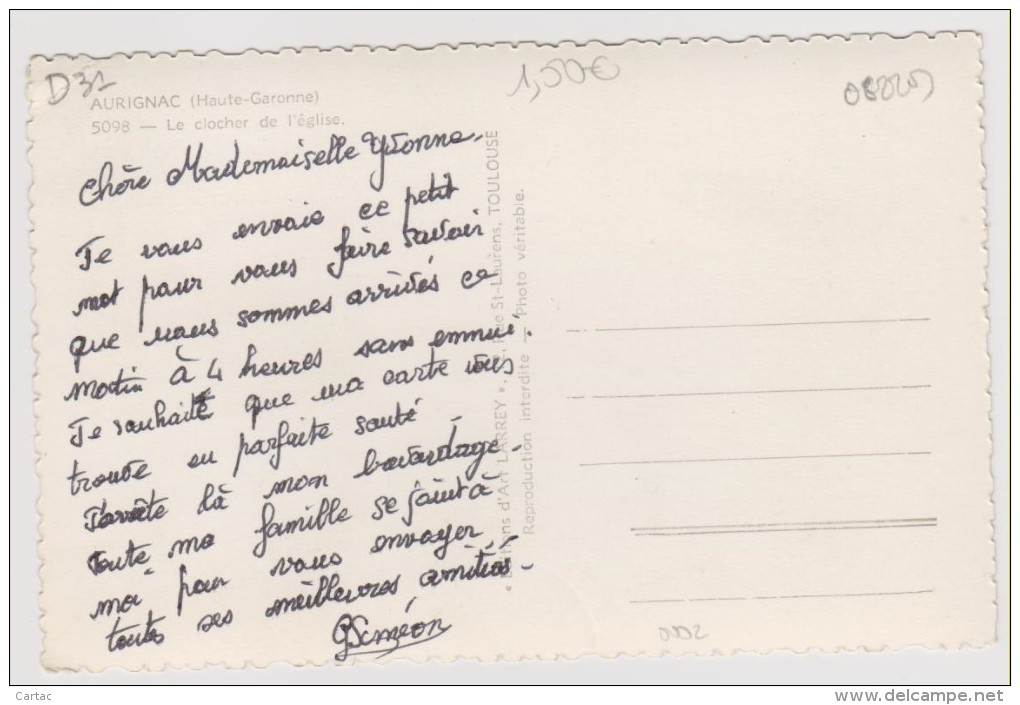 D31
1,50€
AURIGNAC (Haute-Garonne)
5098 — Le clocher de l'église.
Chère Mademoiselle Yvonne.
Je vous envoie ce petit
mot pour vous faire savoir
que nous sommes arrivés ce
matin à 4 heures sans ennui.
Je souhaite que ma carte vous
trouve en parfaite santé -
J'arrête là mon bavardage.
Toute ma famille se joint à
moi pour vous envoyer
toutes ses meilleures amitiés -
GSiméon
« Editions d'Art LARREY », St-Laurens, TOULOUSE
Reproduction interdite — Photo véritable.
Cartac
www.delcampe.net